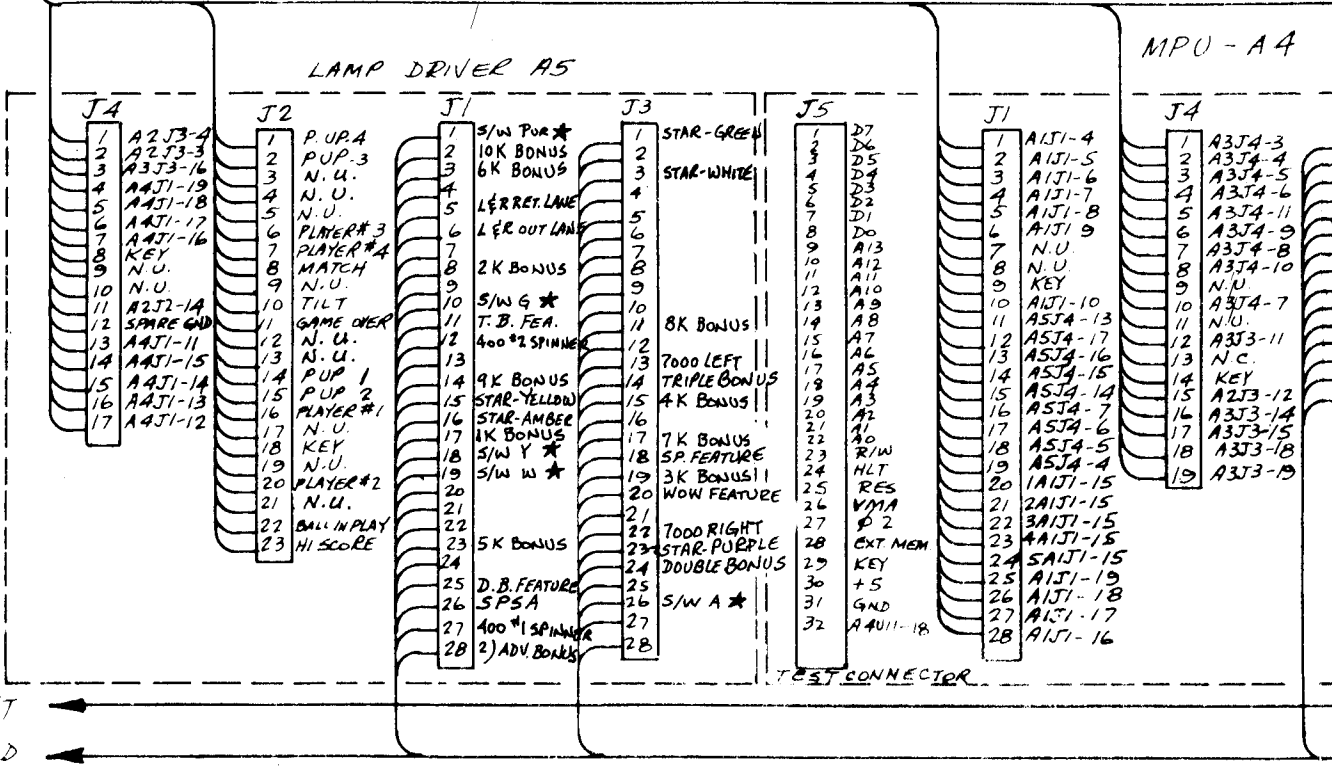 MPU - A4
LAMP DRIVER A5
J4
1 A2J3-4
2 A2J3-3
3 A3J3-16
4 A4J1-19
5 A4J1-18
6 A4J1-17
7 A4J1-16
8 KEY
9 N.U.
10 N.U.
11 A2J2-14
12 SPARE GND
13 A4J1-11
14 A4J1-15
15 A4J1-14
16 A4J1-13
17 A4J1-12
J2
1 P.UP.4
2 PUP.3
3 N.U.
4 N.U.
5 N.U.
6 PLAYER#3
7 PLAYER#4
8 MATCH
9 N.U.
10 TILT
11 GAME OVER
12 N.U.
13 N.U.
14 PUP 1
15 PUP 2
16 PLAYER#1
17 N.U.
18 KEY
19 N.U.
20 PLAYER#2
21 N.U.
22 BALL IN PLAY
23 HI SCORE
J1
1 S/W PUR ★
2 10K BONUS
3 6K BONUS
4
5 L&R RET. LANE
6 L&R OUT LANE
7
8 2K BONUS
9
10 S/W G ★
11 T.B. FEA.
12 400 #2 SPINNER
13
14 9K BONUS
15 STAR-YELLOW
16 STAR-AMBER
17 1K BONUS
18 S/W Y ★
19 S/W W ★
20
21
22
23 5K BONUS
24
25 D.B. FEATURE
26 SPSA
27 400 #1 SPINNER
28 2) ADV. BONUS
J3
1 STAR-GREEN
2
3 STAR-WHITE
4
5
6
7
8
9
10
11 8K BONUS
12
13 7000 LEFT
14 TRIPLE BONUS
15 4K BONUS
16
17 7K BONUS
18 SP. FEATURE
19 3K BONUS
20 WOW FEATURE
21
22 7000 RIGHT
23 STAR-PURPLE
24 DOUBLE BONUS
25
26 S/W A ★
27
28
J5
1 D7
2 D6
3 D5
4 D4
5 D3
6 D2
7 D1
8 D0
9 A13
10 A12
11 A11
12 A10
13 A9
14 A8
15 A7
16 A6
17 A5
18 A4
19 A3
20 A2
21 A1
22 A0
23 R/W
24 HLT
25 RES
26 VMA
27 Φ2
28 EXT. MEM.
29 KEY
30 +5
31 GND
32 A4U11-18
TEST CONNECTOR
J1
1 A1J1-4
2 A1J1-5
3 A1J1-6
4 A1J1-7
5 A1J1-8
6 A1J1 9
7 N.U.
8 N.U.
9 KEY
10 A1J1-10
11 A5J4-13
12 A5J4-17
13 A5J4-16
14 A5J4-15
15 A5J4-14
16 A5J4-7
17 A5J4-6
18 A5J4-5
19 A5J4-4
20 1A1J1-15
21 2A1J1-15
22 3A1J1-15
23 4A1J1-15
24 5A1J1-15
25 A1J1-19
26 A1J1-18
27 A1J1-17
28 A1J1-16
J4
1 A3J4-3
2 A3J4-4
3 A3J4-5
4 A3J4-6
5 A3J4-11
6 A3J4-9
7 A3J4-8
8 A3J4-10
9 N.U.
10 A3J4-7
11 N.U.
12 A3J3-11
13 N.C.
14 KEY
15 A2J3-12
16 A3J3-14
17 A3J3-15
18 A3J3-18
19 A3J3-19
T
D